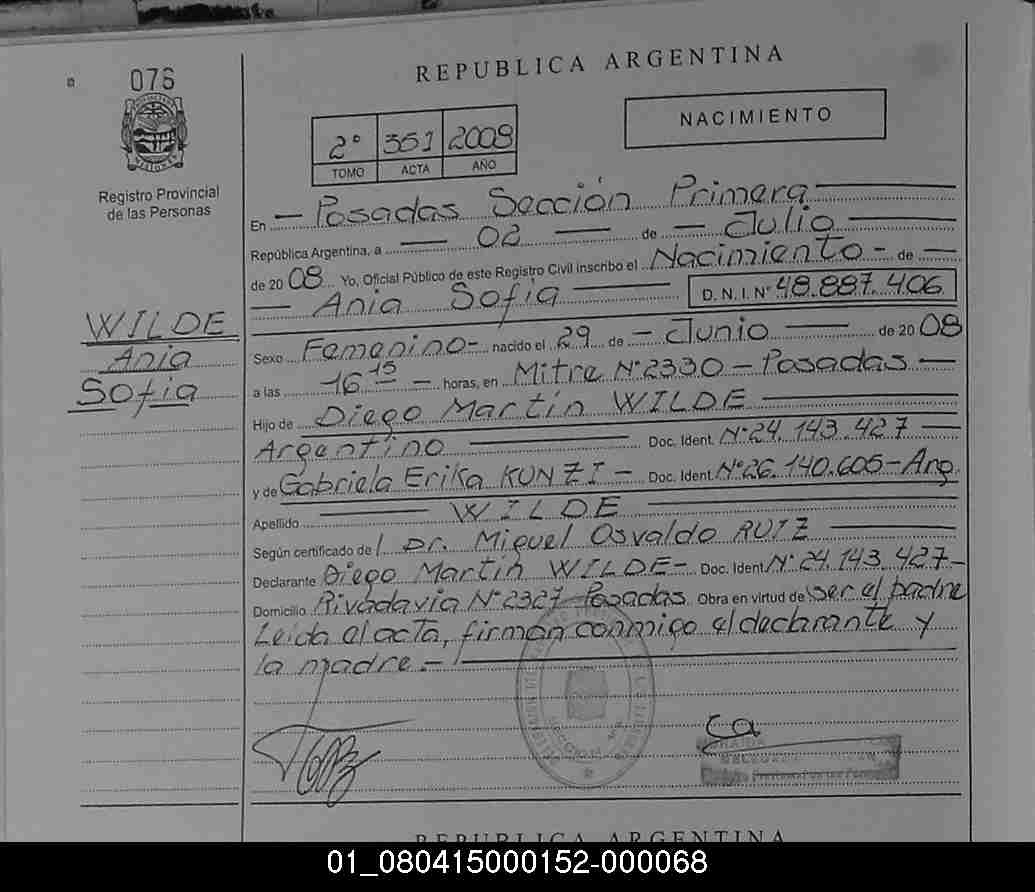 REPUBLICA ARGENTINA
076
NACIMIENTO
2° 351 2008
TOMO ACTA AÑO
Registro Provincial
de las Personas
En — Posadas Sección Primera
República Argentina, a — 02 — de — Julio
de 2008 Yo, Oficial Público de este Registro Civil inscribo el Nacimiento - de —
— Ania Sofia — D.N.I. N° 48.887.406
WILDE
Ania
Sofia
Sexo Femenino- nacido el 29 de - Junio — de 2008
a las 16 15 - horas, en Mitre N° 2330 - Posadas —
Hijo de Diego Martin WILDE
Argentino — Doc. Ident. N° 24.143.427 —
y de Gabriela Erika KUNZI - Doc. Ident. N° 26.140.605 - Arg.
Apellido — WILDE
Según certificado de / Dr. Miguel Osvaldo RUIZ
Declarante Diego Martin WILDE- Doc. Ident. N° 24.143.427-
Domicilio Rivadavia N° 2327 Posadas Obra en virtud de ser el padre
Leida el acta, firman conmigo el declarante y
la madre.-
REPUBLICA ARGENTINA
01_080415000152-000068